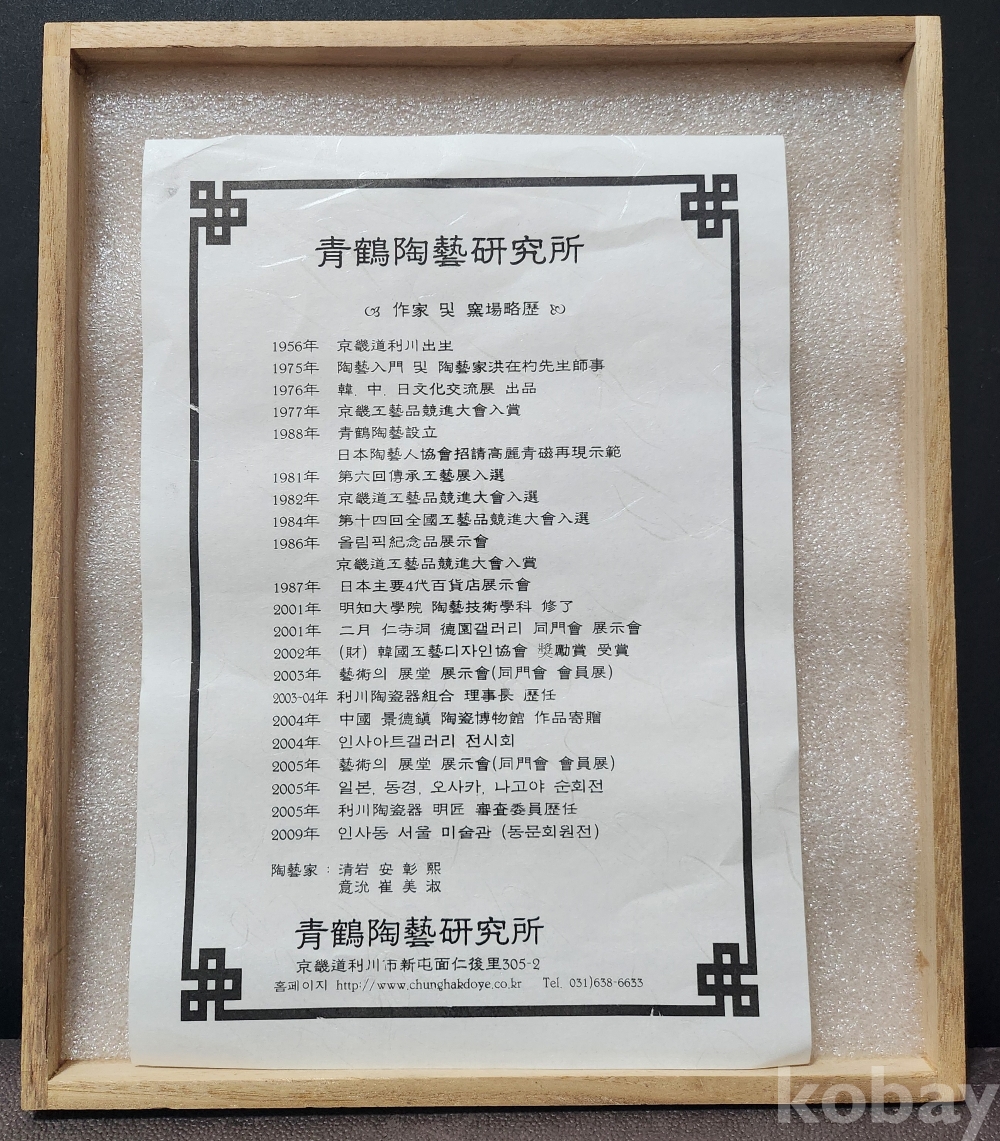 青鶴陶藝研究所
作家 및 窯場略歷
1956年 京畿道利川出生
1975年 陶藝入門 및 陶藝家洪在杓先生師事
1976年 韓. 中. 日文化交流展 出品
1977年 京畿工藝品競進大會入賞
1988年 靑鶴陶藝設立
日本陶藝人協會招請高麗青磁再現示範
1981年 第六回傳承工藝展入選
1982年 京畿道工藝品競進大會入選
1984年 第十四回全國工藝品競進大會入選
1986年 올림픽紀念品展示會
京畿道工藝品競進大會入賞
1987年 日本主要4代百貨店展示會
2001年 明知大學院 陶藝技術學科 修了
2001年 二月 仁寺洞 德園갤러리 同門會 展示會
2002年 (財) 韓國工藝디자인協會 獎勵賞 受賞
2003年 藝術의 展堂 展示會(同門會 會員展)
2003-04年 利川陶瓷器組合 理事長 歷任
2004年 中國 景德鎭 陶瓷博物館 作品寄贈
2004年 인사아트갤러리 전시회
2005年 藝術의 展堂 展示會(同門會 會員展)
2005年 일본, 동경, 오사카, 나고야 순회전
2005年 利川陶瓷器 明匠 審査委員歷任
2009年 인사동 서울 미술관 (동문회원전)
陶藝家 : 清岩 安 彰 熙
意沇 崔 美 淑
青鶴陶藝研究所
京畿道利川市新屯面仁後里305-2
홈페이지 http://www.chunghakdoye.co.kr Tel. 031)638-6633
kobay